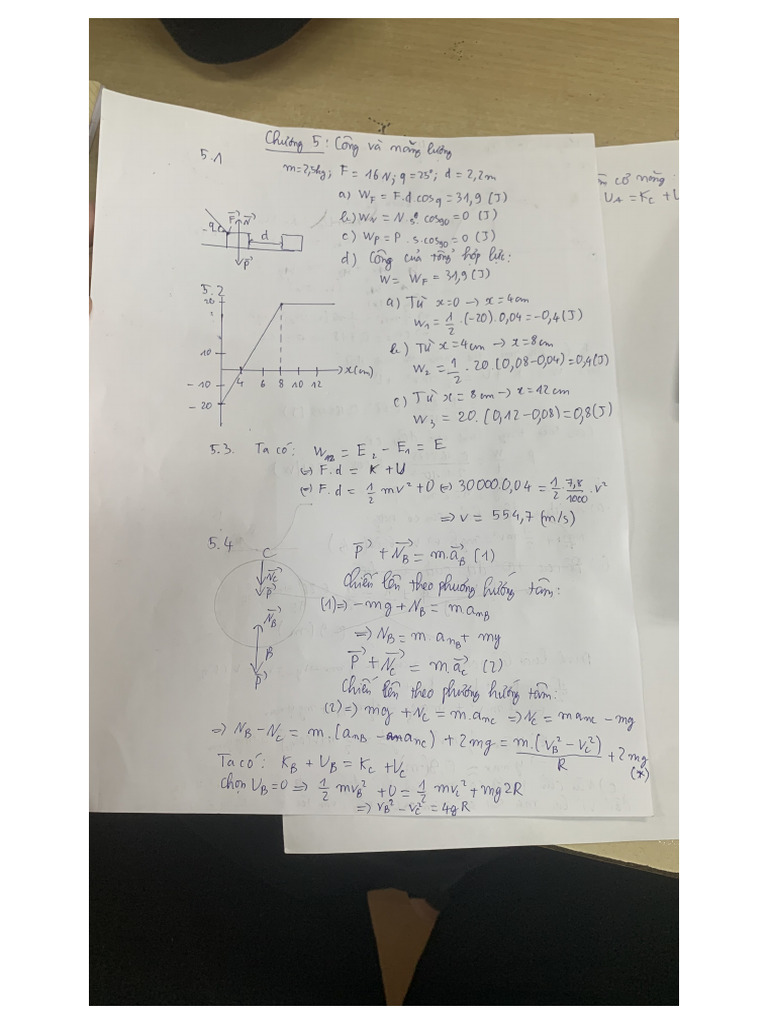 Chương 5: Công và năng lượng
5.1
m=2,5kg; F = 16N; φ=25°; d = 2,2m
a) W_F = F.d.cosφ = 31,9 (J)
b) W_N = N.s.cos90 = 0 (J)
c) W_P = P.s.cos90 = 0 (J)
d) Công của tổng hợp lực:
W = W_F = 31,9 (J)
F→ N→
d
P→
5.2
20
10
-10
-20
4 6 8 10 12 x(cm)
a) Từ x=0 → x=4cm
W₁ = 1/2 .(-20).0,04 = -0,4 (J)
b) Từ x=4cm → x=8cm
W₂ = 1/2 . 20.(0,08-0,04) = 0,4(J)
c) Từ x=8cm → x=12cm
W₃ = 20.(0,12-0,08) = 0,8(J)
5.3. Ta có: W₁₂ = E₂ - E₁ = E
(=) F.d = K + U
(=) F.d = 1/2 mv² + 0 (=) 30000.0,04 = 1/2 . 7,8/1000 . v²
=> v = 554,7 (m/s)
5.4
C
N_C→
P→
N_B→
B
P→
P→ + N_B→ = m.a_B→ (1)
Chiếu lên theo phương hướng tâm:
(1) => -mg + N_B = m a_nB
=> N_B = m.a_nB + mg
P→ + N_C→ = m.a_C→ (2)
Chiếu lên theo phương hướng tâm:
(2) => mg + N_C = m.a_nC => N_C = ma_nC - mg
=> N_B - N_C = m.(a_nB - a_nC) + 2mg = m.(v_B² - v_C²)/R + 2mg (*)
Ta có: K_B + U_B = K_C + U_C
Chọn U_B=0 => 1/2 mv_B² + 0 = 1/2 mv_C² + mg2R
=> v_B² - v_C² = 4gR
cơ năng:
U_A = K_C +